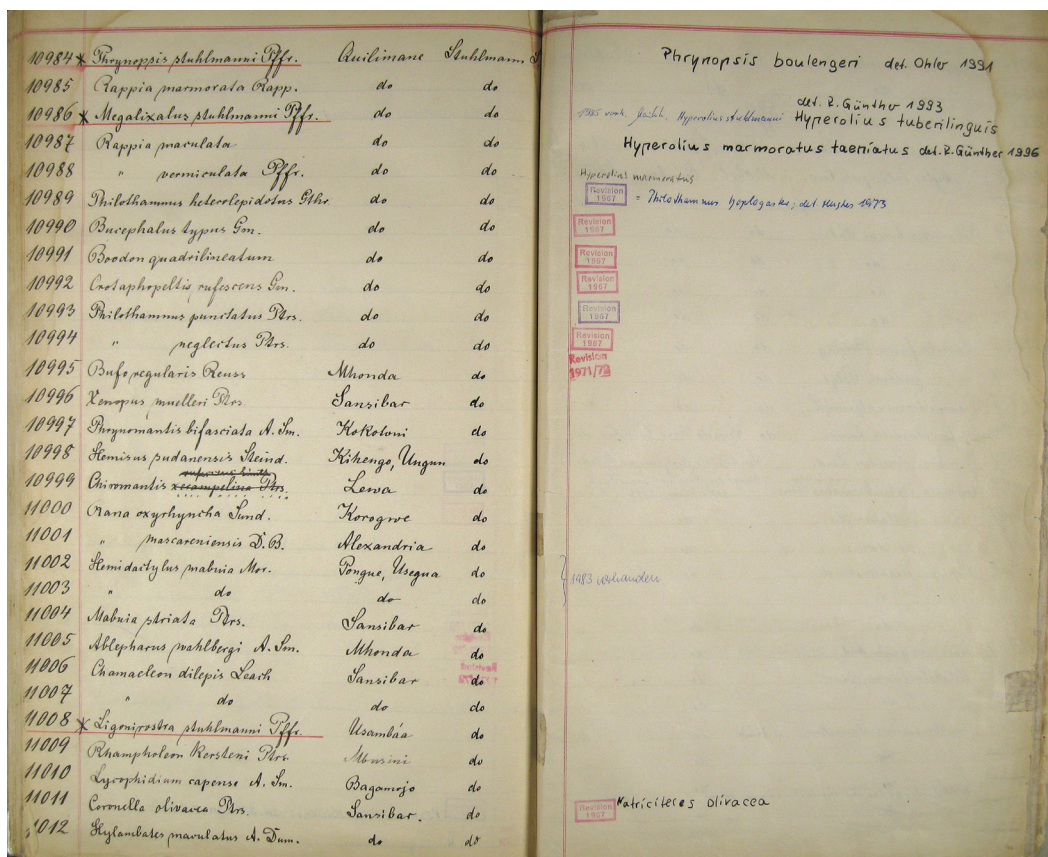 10984 * Phrynopsis stuhlmanni Pffr. Quilimane Stuhlmann S
10985 Rappia marmorata Rapp. do do
10986 * Megalixalus stuhlmanni Pffr. do do
10987 Rappia maculata do do
10988 " vermiculata Pffr. do do
10989 Philothamnus heterolepidotus Gthr. do do
10990 Bucephalus typus Gm. do do
10991 Boodon quadrilineatum do do
10992 Crotaphopeltis rufescens Gm. do do
10993 Philothamnus punctatus Ptrs. do do
10994 " neglectus Ptrs. do do
10995 Bufo regularis Reuss Mhonda do
10996 Xenopus muelleri Ptrs. Sansibar do
10997 Phrynomantis bifasciata A. Sm. Kokotoni do
10998 Hemisus sudanensis Steind. Kihengo, Ungun do
10999 Chiromantis xerampelina Ptrs. Lewa do
11000 Rana oxyrhyncha Sund. Korogwe do
11001 " mascareniensis D.B. Alexandria do
11002 Hemidactylus mabuia Mor. Pongue, Usegua do
11003 " do do do
11004 Mabuia striata Ptrs. Sansibar do
11005 Ablepharus wahlbergi A. Sm. Mhonda do
11006 Chamaeleon dilepis Leach Sansibar do
11007 " do do do
11008 * Ligonirostra stuhlmanni Pffr. Usambáa do
11009 Rhampholeon Kersteni Ptrs. Mbusini do
11010 Lycophidium capense A. Sm. Bagamojo do
11011 Coronella olivacea Ptrs. Sansibar. do
1012 Hylambates maculatus A. Dum. do do
Phrynopsis boulengeri det. Ohler 1991
det. R. Günther 1993
1985 vorh. Hyperolius stuhlmanni Hyperolius tuberilinguis
Hyperolius marmoratus taeniatus det. R. Günther 1996
Hyperolius marmoratus
Revision
1967
= Philothamnus hoplogaster; det 1973
Revision
1967
Revision
1967
Revision
1967
Revision
1967
Revision
1967
Revision
1971/72
1983 vorhanden
Revision
1967
Natriciteres olivacea